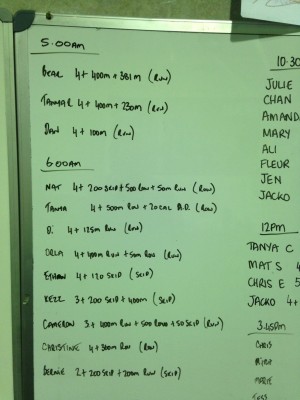 5.00AM
BEAR 4+ 400m + 381m (RUN)
TANMAR 4+ 400m + 230m (RUN)
DAN 4+ 100m (RUN)
6:00AM
NAT 4+ 200 SKIP + 500 ROW + 50m RUN (RUN)
TANYA 4+ 500m ROW + 20 CAL A.D. (ROW)
D. 4+ 125m RUN (RUN)
ORLA 4+ 400m RUN + 50m ROW (ROW)
ETHAN 4+ 120 SKIP (SKIP)
KEZZ 3+ 200 SKIP + 400m (SKIP)
CAMERON 3+ 400m RUN + 500 ROW + 50 SKIP (RUN)
CHRISTINE 4+ 300m ROW (ROW)
BERNIE 2+ 200 SKIP + 200m RUN (SKIP)
10:30
JULIE
CHAN
AMAND
MARY
ALI
FLEUR
JEN
JACKO
12PM
TANYA C
MAT S 4
CHRIS E 5
JACKO 4+
3:45PM
CHRIS
MARIE
TESS